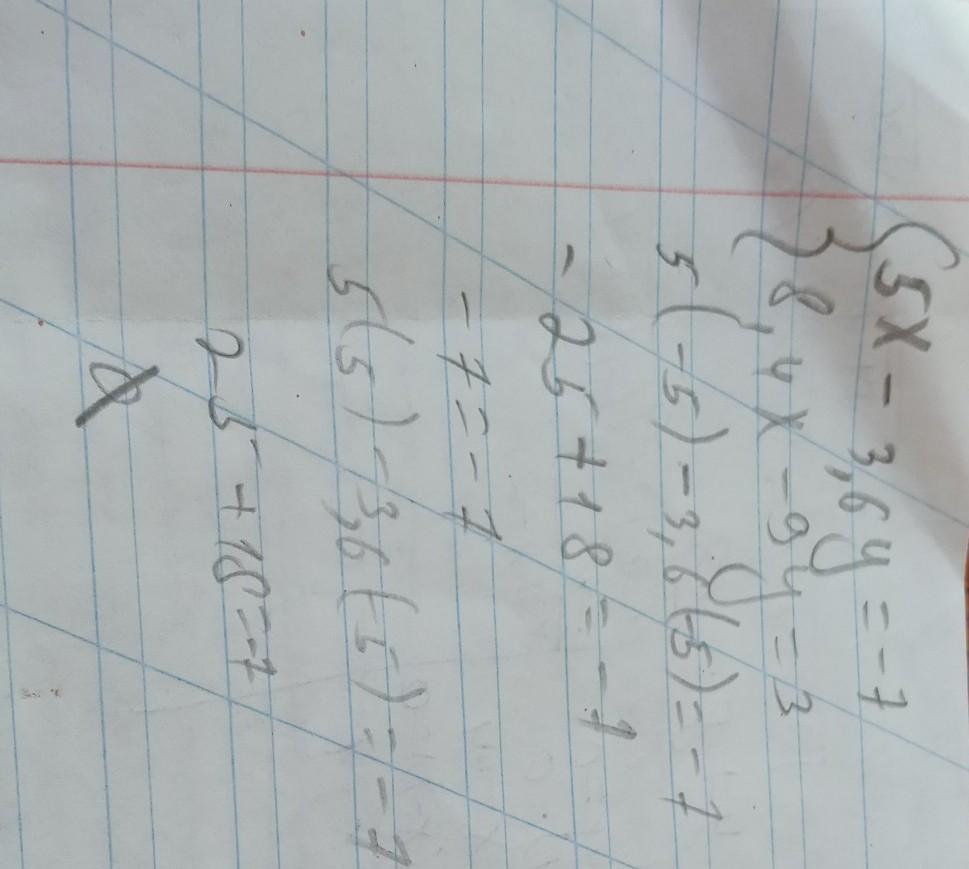 {5x - 3,6y = -7
{8,4x - 9y = 3
5(-5) - 3,6(-5) = -7
-25 + 18 = -7
-7 = -7
5(5) - 3,6(-5) = -7
25 + 18 = -7